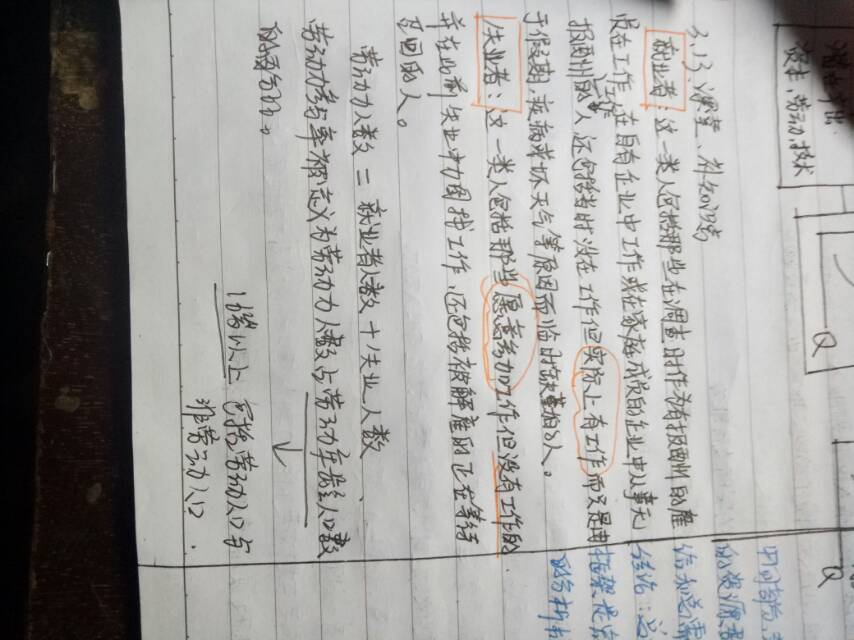 3.13. 课堂、补知识
就业者：这一类人包括那些在调查时作为有报酬的雇
员在工作、在自有企业中工作或在家庭成员的企业中从事无
报酬工作的人。还包括当时没在工作但实际上有工作而只是由
于假期，疾病或坏天气等原因而临时缺工的人。
失业者：这一类人包括那些愿意参加工作但没有工作的
并在此前失业中力图找工作、还包括被解雇的正在等待
召回的人。
劳动力人数 = 就业者人数 + 失业人数
劳动力参与率被定义为劳动力人数占劳动年龄人口数
的百分比。
↓
16岁以上 包括劳动人口与
非劳动人口.
资本,劳动,技术
Q
Q
的资源
结论：
框架是
的分析